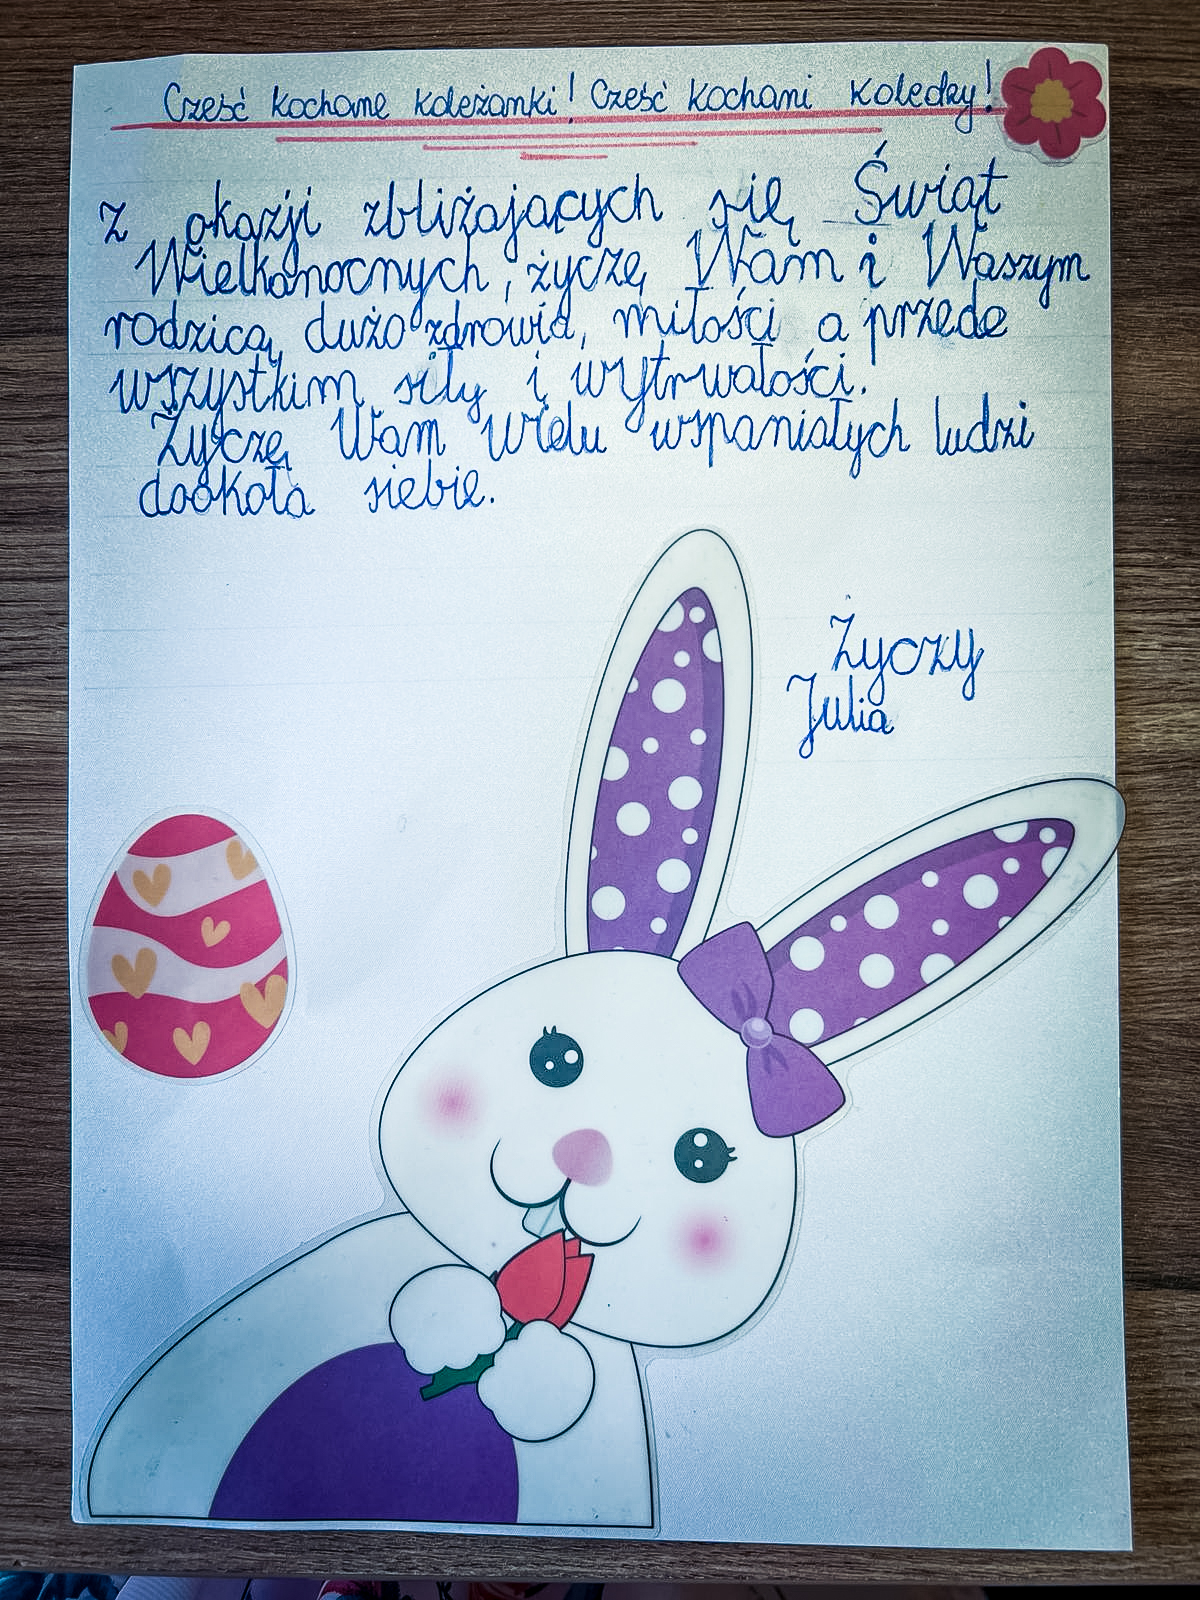 Cześć kochane koleżanki! Cześć kochani koledzy!
Z okazji zbliżających się Świąt
Wielkanocnych, życzę Wam i Waszym
rodzicą, dużo zdrowia, miłości a przede
wszystkim siły i wytrwałości.
Życzę Wam wielu wspaniałych ludzi
dookoła siebie.
Życzy
Julia